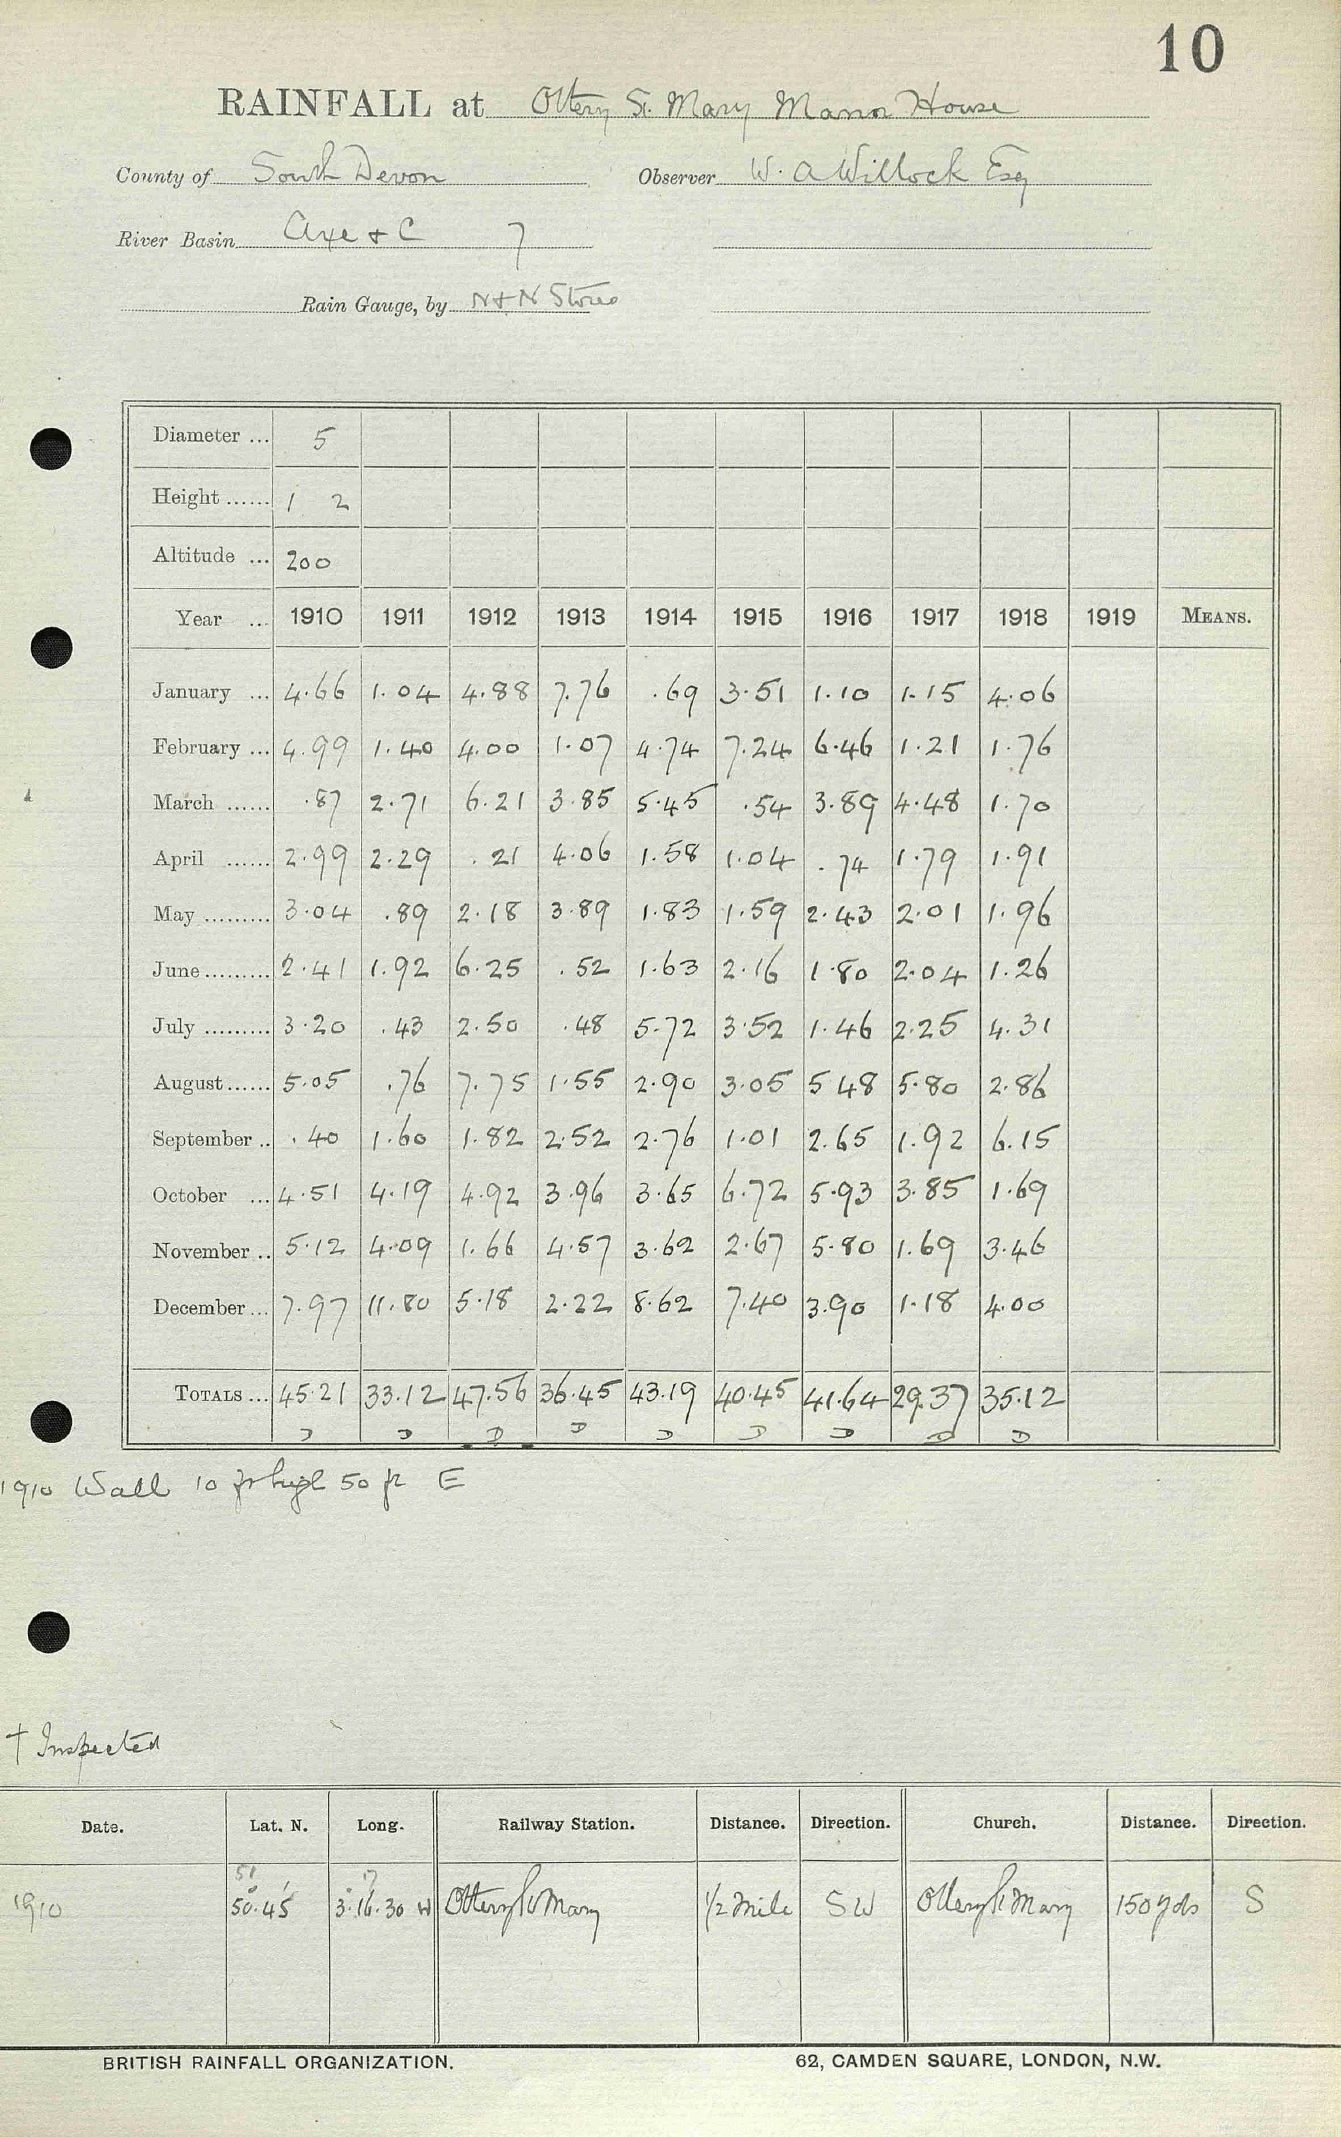 10
RAINFALL at Ottery St. Mary Manor House
County of South Devon Observer W. A Willock Esq
River Basin Axe & C 7
Rain Gauge, by N & N Stores
Diameter ... 5
Height ...... 1 2
Altitude ... 200
Year ... 1910 1911 1912 1913 1914 1915 1916 1917 1918 1919 MEANS.
January ... 4.66 1.04 4.88 7.76 .69 3.51 1.10 1.15 4.06
February ... 4.99 1.40 4.00 1.07 4.74 7.24 6.46 1.21 1.76
March ...... .87 2.71 6.21 3.85 5.45 .54 3.89 4.48 1.70
April ...... 2.99 2.29 .21 4.06 1.58 1.04 .74 1.79 1.91
May ......... 3.04 .89 2.18 3.89 1.83 1.59 2.43 2.01 1.96
June ......... 2.41 1.92 6.25 .52 1.63 2.16 1.80 2.04 1.26
July ......... 3.20 .43 2.50 .48 5.72 3.52 1.46 2.25 4.31
August ...... 5.05 .76 7.75 1.55 2.90 3.05 5 48 5.80 2.86
September .. .40 1.60 1.82 2.52 2.76 1.01 2.65 1.92 6.15
October ... 4.51 4.19 4.92 3.96 3.65 6.72 5.93 3.85 1.69
November .. 5.12 4.09 1.66 4.57 3.62 2.67 5.80 1.69 3.46
December ... 7.97 11.80 5.18 2.22 8.62 7.40 3.90 1.18 4.00
TOTALS ... 45.21 33.12 47.56 36.45 43.19 40.45 41.64 29.37 35.12
D D D D D D D D D
1910 Wall 10 ft high 50 ft E
† Inspected
Date. Lat. N. Long. Railway Station. Distance. Direction. Church. Distance. Direction.
51 17
1910 50° 45' 3° 16. 30 W Ottery St Mary 1/2 mile SW Ottery St Mary 150 yds S
BRITISH RAINFALL ORGANIZATION. 62, CAMDEN SQUARE, LONDON, N.W.